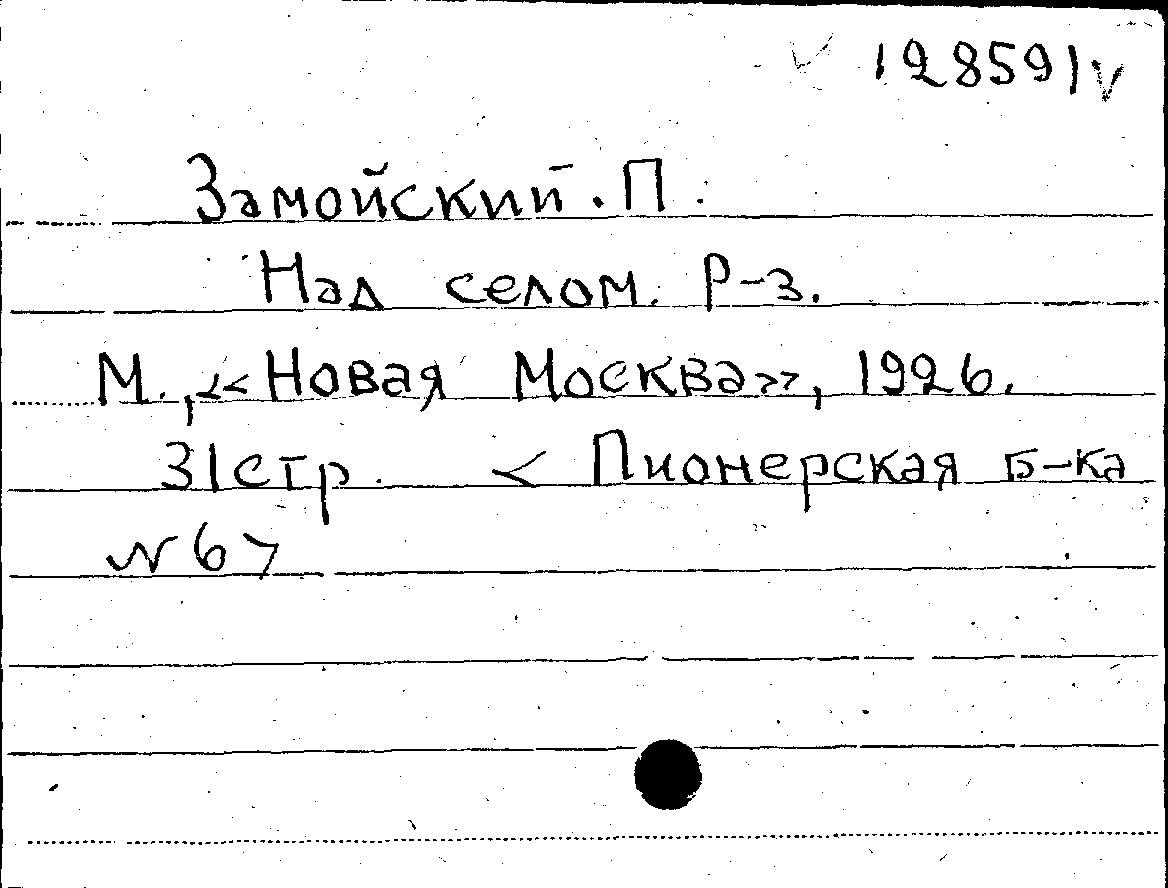 128591
Замойский. П.
Над селом. Р-з.
М., «Новая Москва», 1926.
31 стр. < Пионерская б-ка
N 6 >